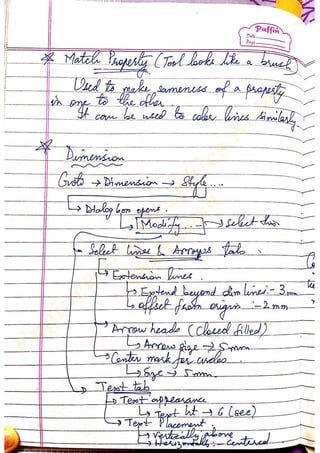 Puffin
Date
Page
* Match Property (Tool looks like a brush)
Used to make sameness of a property
in one to the other
It can be used to color lines similarly.
* Dimension
Goto → Dimension → Style....
↳ Dialog box opens.
↳ Modify.... → Select this
- Select lines & Arrows tab.
↳ Extension lines.
↳ Extend beyond dim lines:- 3 mm
↳ offset from origin :- 2 mm
→ Arrow heads (Closed filled)
↳ Arrow size → 5 mm
→ Center mark for circles.
↳ Size → 5 mm.
→ Text tab
→ Text appearance
↳ Text ht → 6 (see)
↳ Text Placement
↳ Vertically above
↳ Horizontally:- Centered